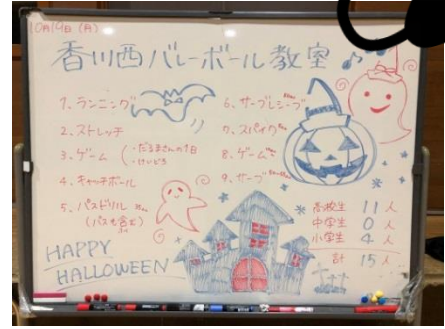 10月19日(月)
香川西バレーボール教室
1. ランニング
2. ストレッチ
3. ゲーム (・だるまさんの1日
・けいどろ
4. キャッチボール
5. パスドリル
(パスも含む)
6. サーブレシーブ
7. スパイク
8. ゲーム
9. サーブ
高校生 11人
中学生 0人
小学生 4人
計 15人
HAPPY
HALLOWEEN